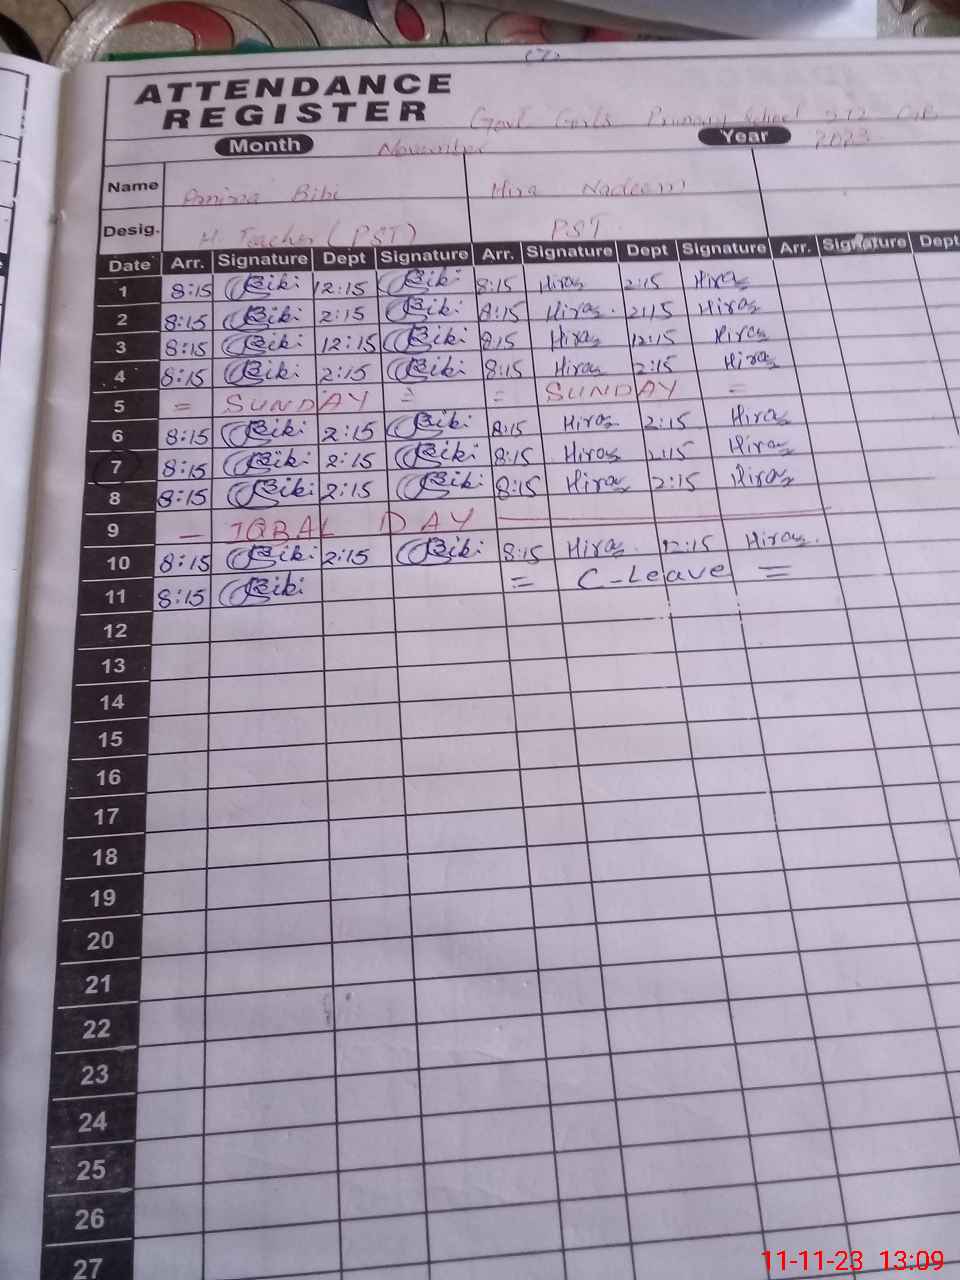 (7)
ATTENDANCE
REGISTER
Govt Girls Primary School
Month November Year 2023
Name Amina Bibi Hira Nadeem
Desig. H. Teacher (PST) PST
Date Arr. Signature Dept Signature Arr. Signature Dept Signature Arr. Signature Dept
1 8:15 Bibi 12:15 Bibi 8:15 Hira 2:15 Hira
2 8:15 Bibi 2:15 Bibi 8:15 Hira 2:15 Hira
3 8:15 Bibi 12:15 Bibi 8:15 Hira 12:15 Hira
4 8:15 Bibi 2:15 Bibi 8:15 Hira 2:15 Hira
5 = SUNDAY = = SUNDAY =
6 8:15 Bibi 2:15 Bibi 8:15 Hira 2:15 Hira
7 8:15 Bibi 2:15 Bibi 8:15 Hira 2:15 Hira
8 8:15 Bibi 2:15 Bibi 8:15 Hira 2:15 Hira
9 — IQBAL DAY —
10 8:15 Bibi 2:15 Bibi 8:15 Hira 12:15 Hira
11 8:15 Bibi = C-Leave =
12
13
14
15
16
17
18
19
20
21
22
23
24
25
26
27
11-11-23 13:09